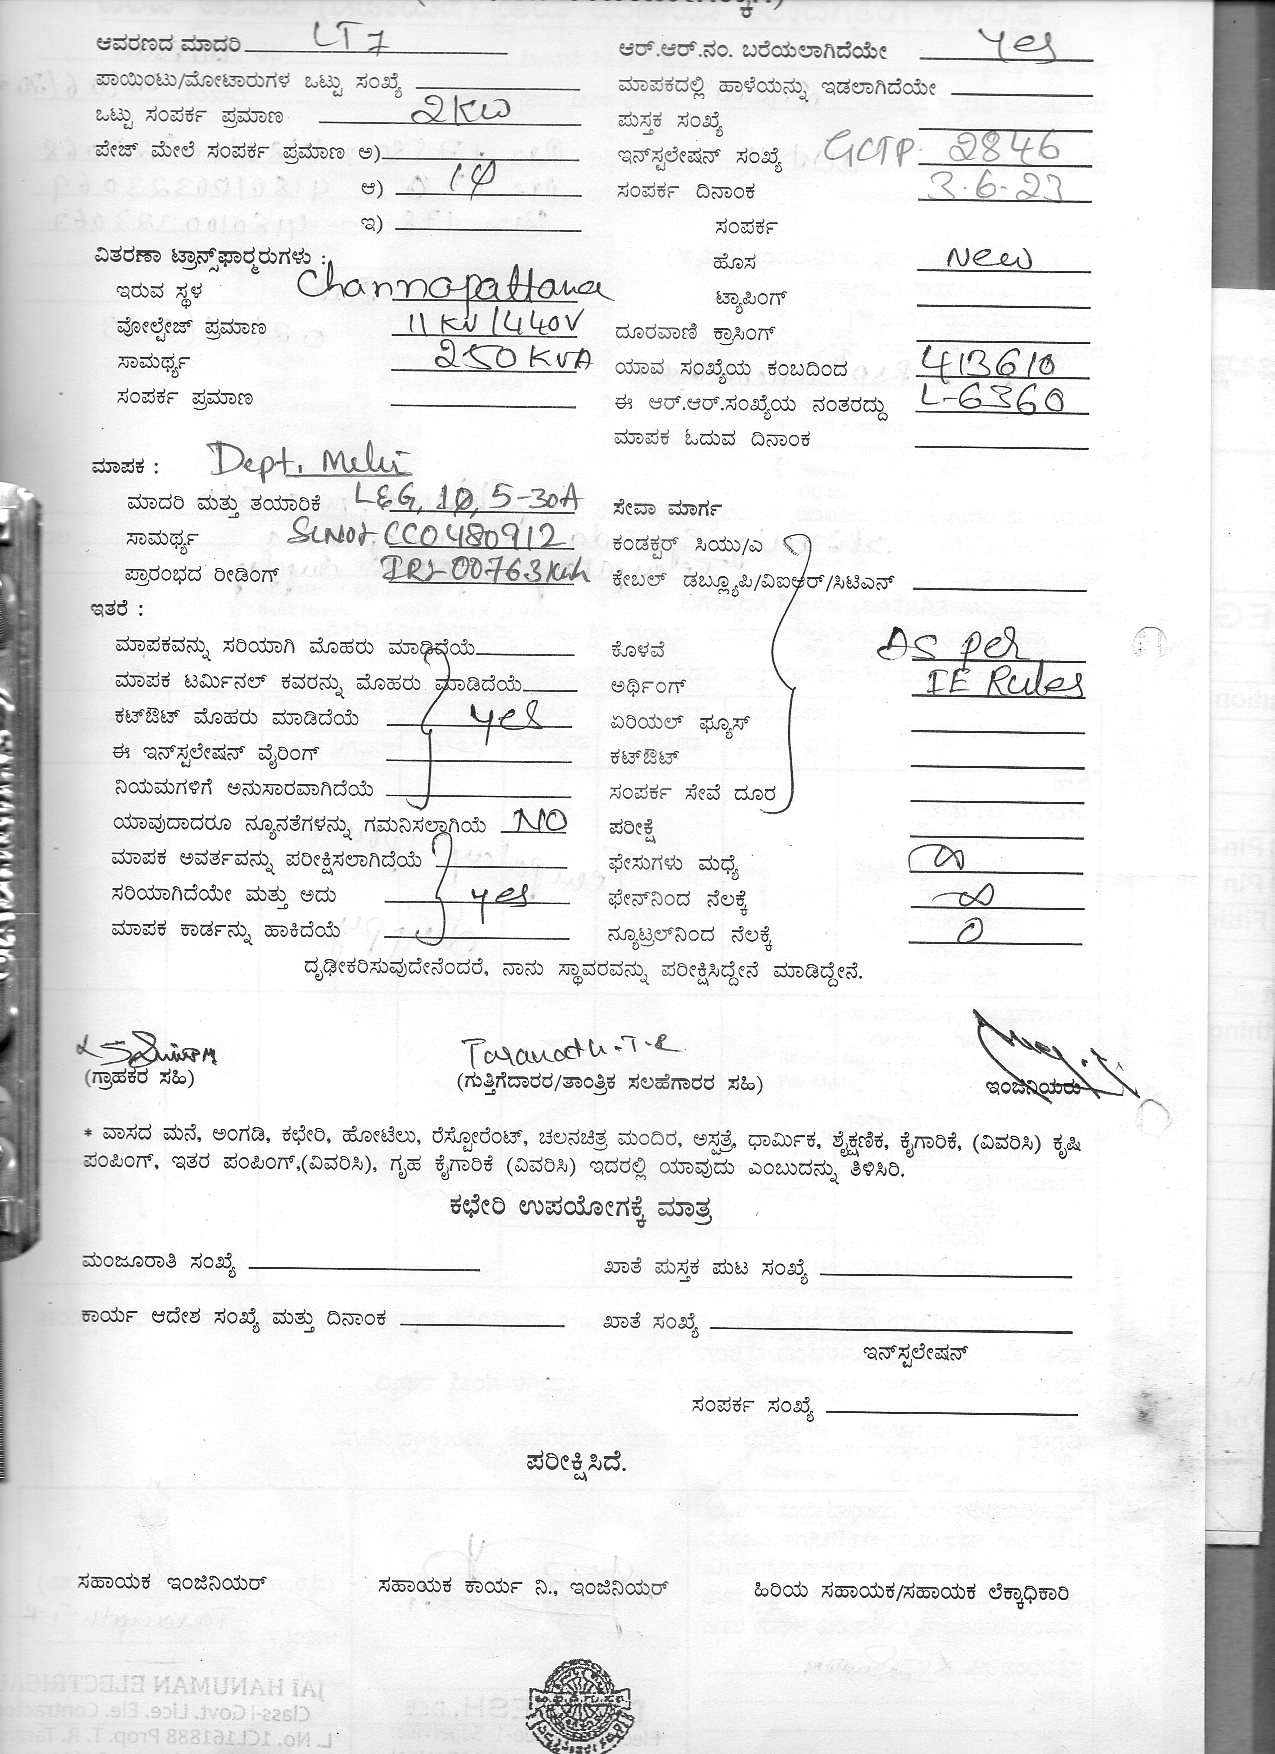 ಆವರಣದ ಮಾದರಿ LT7
ಪಾಯಿಂಟು/ಮೋಟಾರುಗಳ ಒಟ್ಟು ಸಂಖ್ಯೆ
ಒಟ್ಟು ಸಂಪರ್ಕ ಪ್ರಮಾಣ 2KW
ಪೇಜ್ ಮೇಲೆ ಸಂಪರ್ಕ ಪ್ರಮಾಣ ಅ)
ಆ) 1φ
ಇ)
ವಿತರಣಾ ಟ್ರಾನ್ಸ್‌ಫಾರ್‍ಮರುಗಳು :
ಇರುವ ಸ್ಥಳ Channapattana
ವೋಲ್ಟೇಜ್ ಪ್ರಮಾಣ 11KV/440V
ಸಾಮರ್ಥ್ಯ 250KVA
ಸಂಪರ್ಕ ಪ್ರಮಾಣ
ಆರ್.ಆರ್.ನಂ. ಬರೆಯಲಾಗಿದೆಯೇ Yes
ಮಾಪಕದಲ್ಲಿ ಹಾಳೆಯನ್ನು ಇಡಲಾಗಿದೆಯೇ
ಪುಸ್ತಕ ಸಂಖ್ಯೆ
ಇನ್‌ಸ್ಟಲೇಷನ್ ಸಂಖ್ಯೆ GCTP 2846
ಸಂಪರ್ಕ ದಿನಾಂಕ 3.6.23
ಸಂಪರ್ಕ
ಹೊಸ New
ಟ್ಯಾಪಿಂಗ್
ದೂರವಾಣಿ ಕ್ರಾಸಿಂಗ್
ಯಾವ ಸಂಖ್ಯೆಯ ಕಂಬದಿಂದ 413610
ಈ ಆರ್.ಆರ್.ಸಂಖ್ಯೆಯ ನಂತರದ್ದು L-6360
ಮಾಪಕ ಓದುವ ದಿನಾಂಕ
ಮಾಪಕ : Dept.
ಮಾದರಿ ಮತ್ತು ತಯಾರಿಕೆ L&G, 1φ, 5-30A
ಸಾಮರ್ಥ್ಯ CC0480912
ಪ್ರಾರಂಭದ ರೀಡಿಂಗ್ IR:-00763 kwh
ಇತರೆ :
ಮಾಪಕವನ್ನು ಸರಿಯಾಗಿ ಮೊಹರು ಮಾಡಿದೆಯೆ
ಮಾಪಕ ಟರ್ಮಿನಲ್ ಕವರನ್ನು ಮೊಹರು ಮಾಡಿದೆಯೆ
ಕಟ್‌ಔಟ್ ಮೊಹರು ಮಾಡಿದೆಯೆ yes
ಈ ಇನ್‌ಸ್ಟಲೇಷನ್ ವೈರಿಂಗ್
ನಿಯಮಗಳಿಗೆ ಅನುಸಾರವಾಗಿದೆಯೆ
ಯಾವುದಾದರೂ ನ್ಯೂನತೆಗಳನ್ನು ಗಮನಿಸಲಾಗಿಯೆ NO
ಮಾಪಕ ಅವರ್ತವನ್ನು ಪರೀಕ್ಷಿಸಲಾಗಿದೆಯೆ
ಸರಿಯಾಗಿದೆಯೇ ಮತ್ತು ಅದು yes
ಮಾಪಕ ಕಾರ್ಡನ್ನು ಹಾಕಿದೆಯೆ
ಸೇವಾ ಮಾರ್ಗ
ಕಂಡಕ್ಟರ್ ಸಿಯು/ಎ
ಕೇಬಲ್ ಡಬ್ಲ್ಯೂಪಿ/ವಿಐಆರ್/ಸಿಟಿಎನ್
ಕೊಳವೆ As per
ಅರ್ಥಿಂಗ್ IE Rules
ಏರಿಯಲ್ ಫ್ಯೂಸ್
ಕಟ್‌ಔಟ್
ಸಂಪರ್ಕ ಸೇವೆ ದೂರ
ಪರೀಕ್ಷೆ
ಫೇಸುಗಳು ಮಧ್ಯೆ ∞
ಫೇಸ್‌ನಿಂದ ನೆಲಕ್ಕೆ ∞
ನ್ಯೂಟ್ರಲ್‌ನಿಂದ ನೆಲಕ್ಕೆ 0
ದೃಢೀಕರಿಸುವುದೇನೆಂದರೆ, ನಾನು ಸ್ಥಾವರವನ್ನು ಪರೀಕ್ಷಿಸಿದ್ದೇನೆ ಮಾಡಿದ್ದೇನೆ.
Taranath.T.R
(ಗ್ರಾಹಕರ ಸಹಿ) (ಗುತ್ತಿಗೆದಾರರ/ತಾಂತ್ರಿಕ ಸಲಹೆಗಾರರ ಸಹಿ) ಇಂಜಿನಿಯರು
* ವಾಸದ ಮನೆ, ಅಂಗಡಿ, ಕಛೇರಿ, ಹೋಟೆಲು, ರೆಸ್ಟೋರೆಂಟ್, ಚಲನಚಿತ್ರ ಮಂದಿರ, ಅಸ್ಪತ್ರೆ, ಧಾರ್ಮಿಕ, ಶೈಕ್ಷಣಿಕ, ಕೈಗಾರಿಕೆ, (ವಿವರಿಸಿ) ಕೃಷಿ
ಪಂಪಿಂಗ್, ಇತರ ಪಂಪಿಂಗ್,(ವಿವರಿಸಿ), ಗೃಹ ಕೈಗಾರಿಕೆ (ವಿವರಿಸಿ) ಇದರಲ್ಲಿ ಯಾವುದು ಎಂಬುದನ್ನು ತಿಳಿಸಿರಿ.
ಕಛೇರಿ ಉಪಯೋಗಕ್ಕೆ ಮಾತ್ರ
ಮಂಜೂರಾತಿ ಸಂಖ್ಯೆ ಖಾತೆ ಪುಸ್ತಕ ಪುಟ ಸಂಖ್ಯೆ
ಕಾರ್ಯ ಆದೇಶ ಸಂಖ್ಯೆ ಮತ್ತು ದಿನಾಂಕ ಖಾತೆ ಸಂಖ್ಯೆ
ಇನ್‌ಸ್ಟಲೇಷನ್
ಸಂಪರ್ಕ ಸಂಖ್ಯೆ
ಪರೀಕ್ಷಿಸಿದೆ.
ಸಹಾಯಕ ಇಂಜಿನಿಯರ್ ಸಹಾಯಕ ಕಾರ್ಯ ನಿ., ಇಂಜಿನಿಯರ್ ಹಿರಿಯ ಸಹಾಯಕ/ಸಹಾಯಕ ಲೆಕ್ಕಾಧಿಕಾರಿ